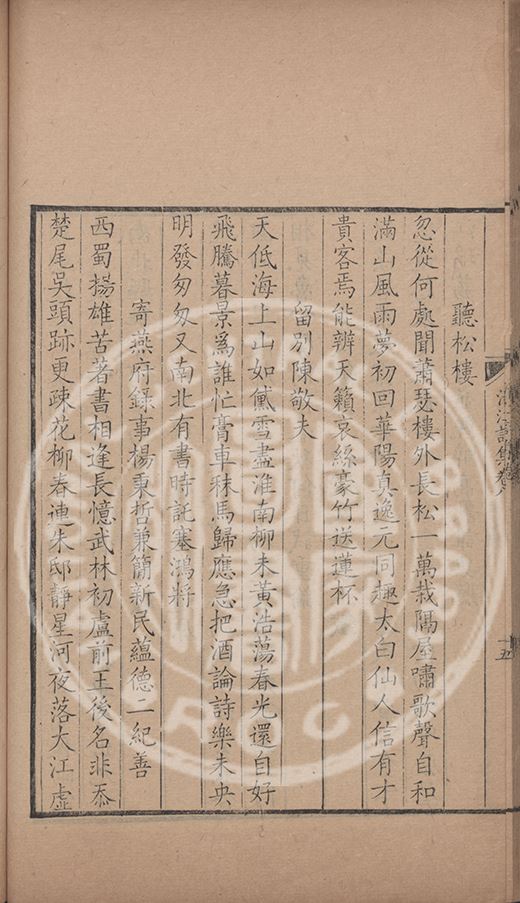 聽松樓
忽從何處聞蕭瑟樓外長松一萬栽隔屋嘯歌聲自和
滿山風雨夢初回華陽真逸元同趣太白仙人信有才
貴客焉能辨天籟哀絲豪竹送蓮杯
留別陳敬夫
天低海上山如黛雪盡淮南柳未黃浩蕩春光還自好
飛騰暮景爲誰忙膏車秣馬歸應急把酒論詩樂未央
明發匆匆又南北有書時託塞鴻將
寄燕府錄事楊秉哲兼簡新民蘊德二紀善
西蜀揚雄苦著書相逢長憶武林初盧前王後名非忝
楚尾吳頭跡更疎花柳春連朱邸靜星河夜落大江虛
詩集卷八
十五